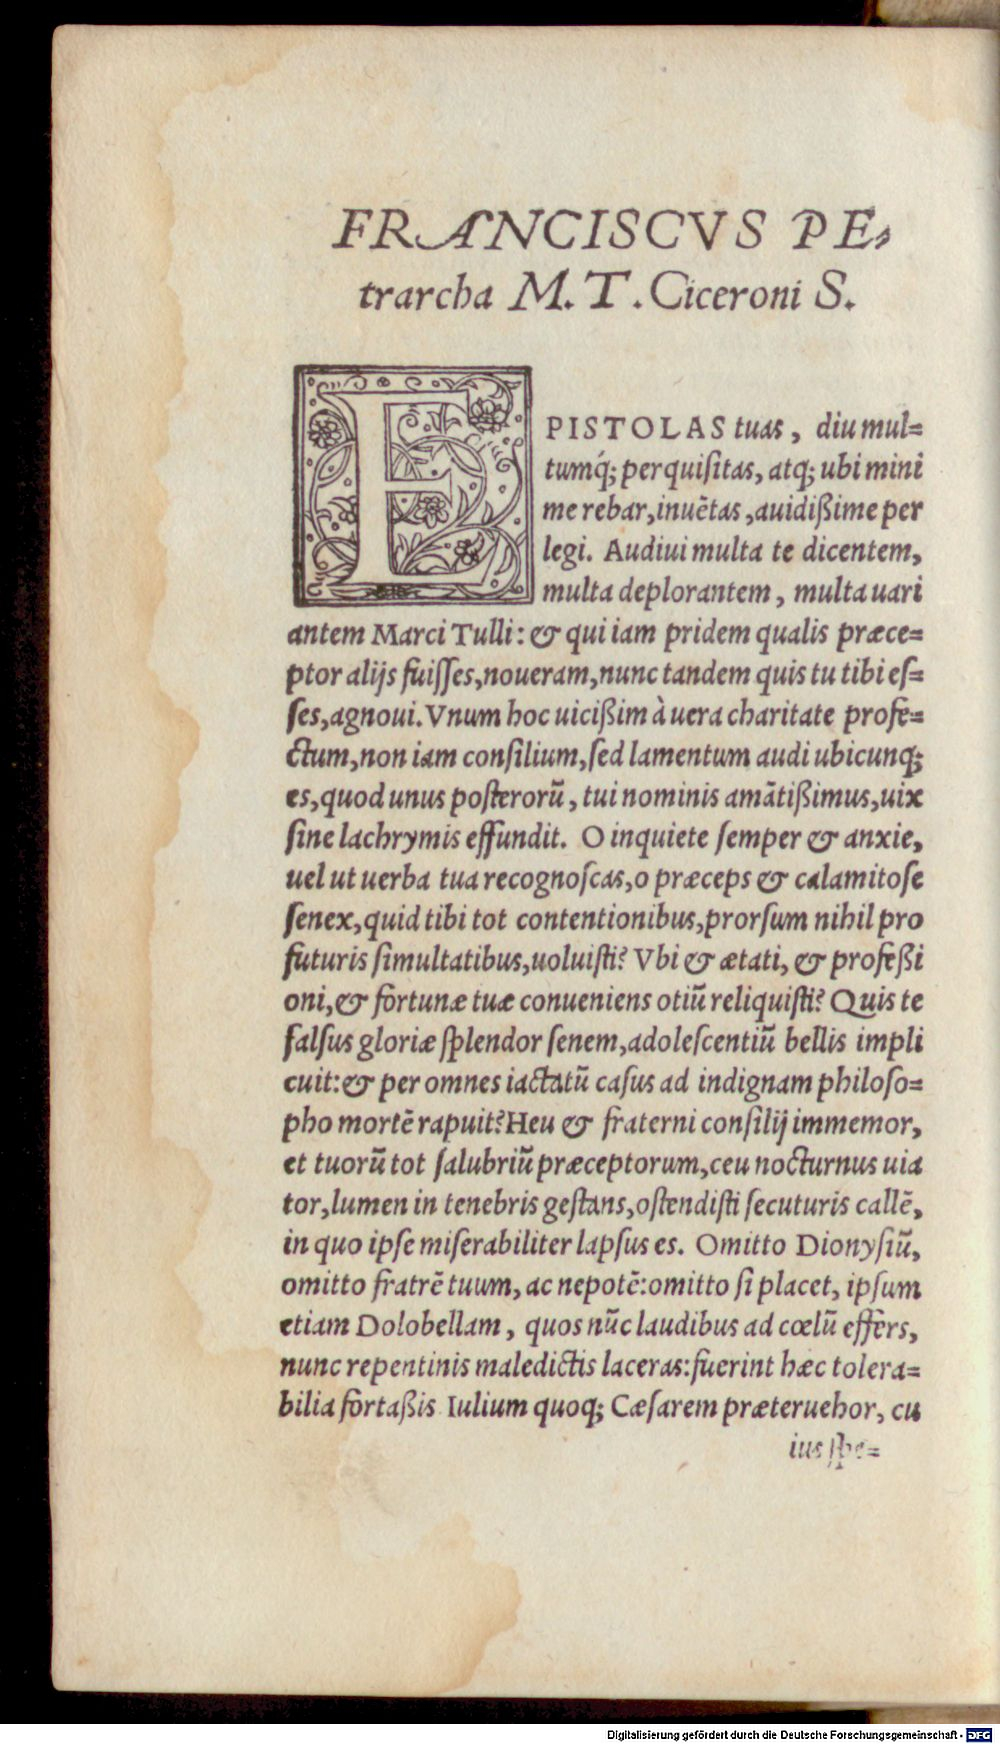 FRANCISCVS PE-
trarcha M. T. Ciceroni S.
EPISTOLAS tuas, diu mul=
tumq́; perquiſitas, atq; ubi mini
me rebar, inuētas, auidißime per
legi. Audiui multa te dicentem,
multa deplorantem, multa uari
antem Marci Tulli: & qui iam pridem qualis præce=
ptor alijs fuiſſes, noueram, nunc tandem quis tu tibi eſ=
ſes, agnoui. Vnum hoc uicißim à uera charitate profe=
ctum, non iam conſilium, ſed lamentum audi ubicunq;
es, quod unus poſterorū, tui nominis amātißimus, uix
ſine lachrymis effundit. O inquiete ſemper & anxie,
uel ut uerba tua recognoſcas, o præceps & calamitoſe
ſenex, quid tibi tot contentionibus, prorſum nihil pro
futuris ſimultatibus, uoluiſti? Vbi & ætati, & profeßi
oni, & fortunæ tuæ conueniens otiū reliquiſti? Quis te
falſus gloriæ ſplendor ſenem, adoleſcentiū bellis impli
cuit: & per omnes iactatū caſus ad indignam philoſo=
pho mortē rapuit? Heu & fraterni conſilij immemor,
et tuorū tot ſalubriū præceptorum, ceu nocturnus uia
tor, lumen in tenebris geſtans, oſtendiſti ſecuturis callē,
in quo ipſe miſerabiliter lapſus es. Omitto Dionyſiū,
omitto fratrē tuum, ac nepotē: omitto ſi placet, ipſum
etiam Dolobellam, quos nūc laudibus ad cœlū effers,
nunc repentinis maledictis laceras: fuerint hæc tolera=
bilia fortaßis Iulium quoq; Cæſarem præteruehor, cu
ius ſpe=
Digitalisierung gefördert durch die Deutsche Forschungsgemeinschaft - DFG